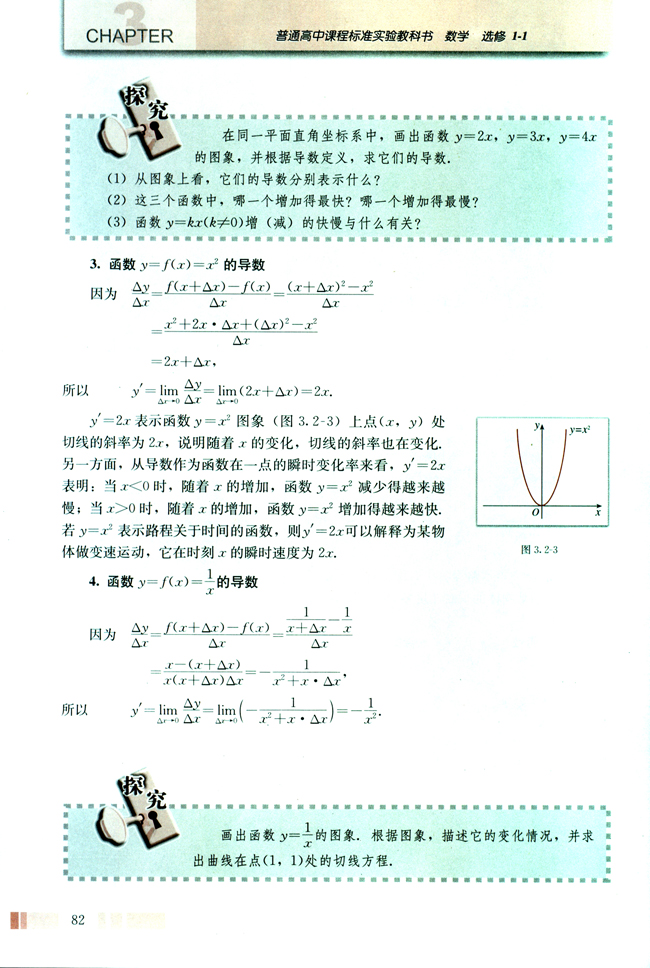 3
CHAPTER
普通高中课程标准实验教科书 数学 选修 1-1
探究
在同一平面直角坐标系中，画出函数 y=2x，y=3x，y=4x
的图象，并根据导数定义，求它们的导数.
(1) 从图象上看，它们的导数分别表示什么？
(2) 这三个函数中，哪一个增加得最快？哪一个增加得最慢？
(3) 函数 y=kx(k≠0)增（减）的快慢与什么有关？
3. 函数 y=f(x)=x² 的导数
因为 Δy/Δx=(f(x+Δx)-f(x))/Δx=((x+Δx)²-x²)/Δx
=(x²+2x·Δx+(Δx)²-x²)/Δx
=2x+Δx，
所以 y′=lim_{Δx→0} Δy/Δx=lim_{Δx→0}(2x+Δx)=2x.
y′=2x 表示函数 y=x² 图象（图 3.2-3）上点(x，y) 处
切线的斜率为 2x，说明随着 x 的变化，切线的斜率也在变化.
另一方面，从导数作为函数在一点的瞬时变化率来看，y′=2x
表明：当 x<0 时，随着 x 的增加，函数 y=x² 减少得越来越
慢；当 x>0 时，随着 x 的增加，函数 y=x² 增加得越来越快.
若 y=x² 表示路程关于时间的函数，则y′=2x可以解释为某物
体做变速运动，它在时刻 x 的瞬时速度为 2x.
y
y=x²
O
x
图 3.2-3
4. 函数 y=f(x)=1/x的导数
因为 Δy/Δx=(f(x+Δx)-f(x))/Δx=(1/(x+Δx)-1/x)/Δx
=(x-(x+Δx))/(x(x+Δx)Δx)=-1/(x²+x·Δx)，
所以 y′=lim_{Δx→0} Δy/Δx=lim_{Δx→0}(-1/(x²+x·Δx))=-1/x².
探究
画出函数 y=1/x的图象. 根据图象，描述它的变化情况，并求
出曲线在点(1，1)处的切线方程.
82